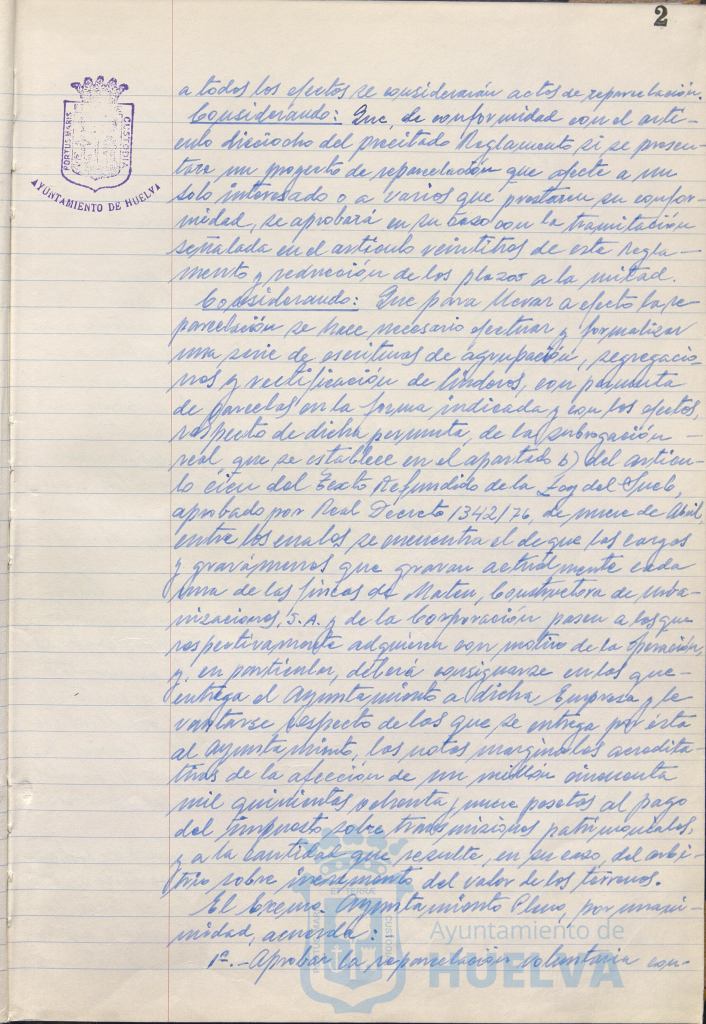 2
PORTUS MARIS
CUSTODIA
AYUNTAMIENTO DE HUELVA
a todos los efectos se considerarán actos de reparcelación.
Considerando: Que, de conformidad con el artí-
culo dieciocho del precitado Reglamento si se presen-
tara un proyecto de reparcelación que afecte a un
solo interesado o a varios que prestaren su confor-
midad, se aprobará en su caso con la tramitación
señalada en el artículo veintitros de este Regla-
mento y reducción de los plazos a la mitad.
Considerando: Que para llevar a efecto la re
parcelación se hace necesario efectuar y formalizar
una serie de escrituras de agrupación, segregacio-
nes y rectificación de linderos, con permuta
de parcelas en la forma indicada y con los efectos,
respecto de dicha permuta, de la subrogación
real, que se establece en el apartado b) del artícu-
lo cien del Texto Refundido de la Ley del Suelo,
aprobado por Real Decreto 1342/76, de nueve de Abril,
entre los cuales se encuentra el de que las cargas
y gravámenes que gravan actualmente cada
una de las fincas de Mateu, Constructora de Urba-
nizaciones, S.A. y de la Corporación pasen a las que
respectivamente adquieren con motivo de la operación,
y, en particular, deberá consignarse en las que
entrega el Ayuntamiento a dicha Empresa y le
vantarse respecto de las que se entrega por ésta
al Ayuntamiento, las notas marginales acredita-
tivas de la afección de un millón cincuenta
mil quinientas ochenta y nueve pesetas al pago
del impuesto sobre transmisiones patrimoniales,
y a la cantidad que resulte, en su caso, del arbi-
trio sobre incremento del valor de los terrenos.
El Excmo. Ayuntamiento Pleno, por unani-
midad, acuerda:
1º.- Aprobar la reparcelación voluntaria con-
Ayuntamiento de
HUELVA